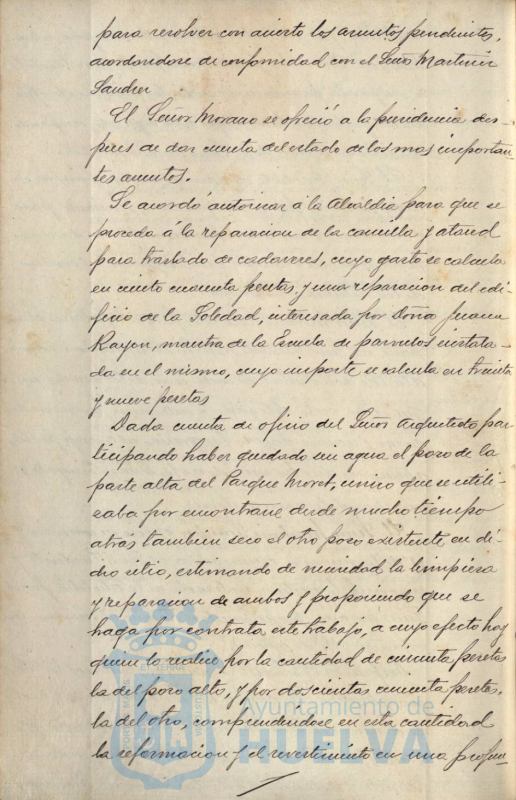 para resolver con acierto los asuntos pendientes,
acordandose de conformidad con el Señor Martinez
Sanchez
El Señor Morano se ofreció a la presidencia des-
pues de dar cuenta del estado de los mas importan-
tes asuntos.
Se acordó autorizar á la Alcaldia para que se
proceda á la reparacion de la camilla y ataud
para traslado de cadaveres, cuyo gasto se calcula
en ciento cincuenta pesetas, y una reparacion del edi-
ficio de la Soledad, interesada por Doña Juana
Rayon, maestra de la Escuela de parvulos instala-
da en el mismo, cuyo importe se calcula en treinta
y nueve pesetas
Dada cuenta de oficio del Señor Arquitecto par-
ticipando haber quedado sin agua el pozo de la
parte alta del Parque Moret, unico que se utili-
zaba por encontrarse desde mucho tiempo
atrás tambien seco el otro pozo existente en di-
cho sitio, estimando de necesidad la limpieza
y reparacion de ambos y proponiendo que se
haga por contrata este trabajo, a cuyo efecto hay
quien lo realice por la cantidad de cincuenta pesetas
la del pozo alto, y por doscientas cincuenta pesetas,
la del otro, comprendiendose en esta cantidad
la reformacion y el revestimiento en una profun-
Ayuntamiento de
HUELVA